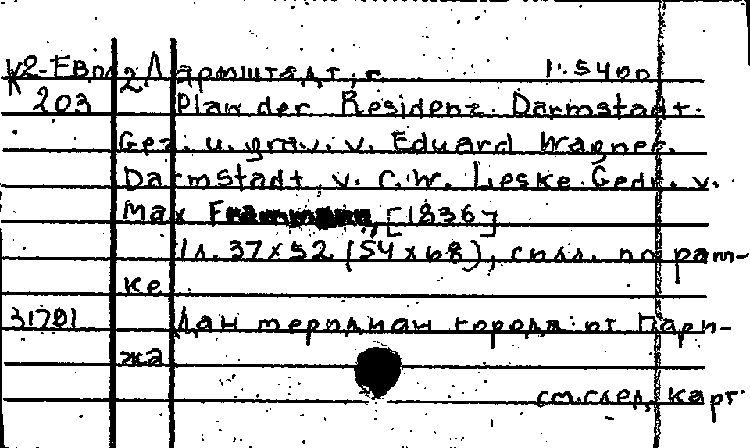 К2-Евп 2/ Дармштадт, г. 1:5400
203 Plan der Residenz. Darmstadt.
Gez. u. grav. v. Eduard Wagner.
Darmstadt, v. C. W. Leske. Gedr. v.
Max [1836]
1 л. 37x52 (54x68), слож. по рам-
ке
31701 Дан меридиан города от Пари-
жа
см. след. карт.